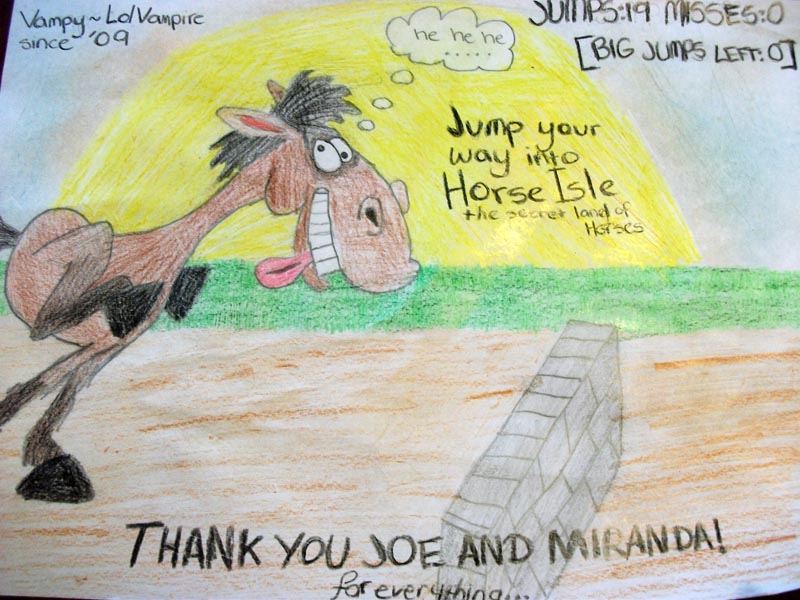 Vampy~LolVampire
since '09
he he he
.....
JUMPS:19 MISSES:0
[BIG JUMPS LEFT:0]
Jump your
way into
Horse Isle
the secret land of
Horses
THANK YOU JOE AND MIRANDA!
for everything...